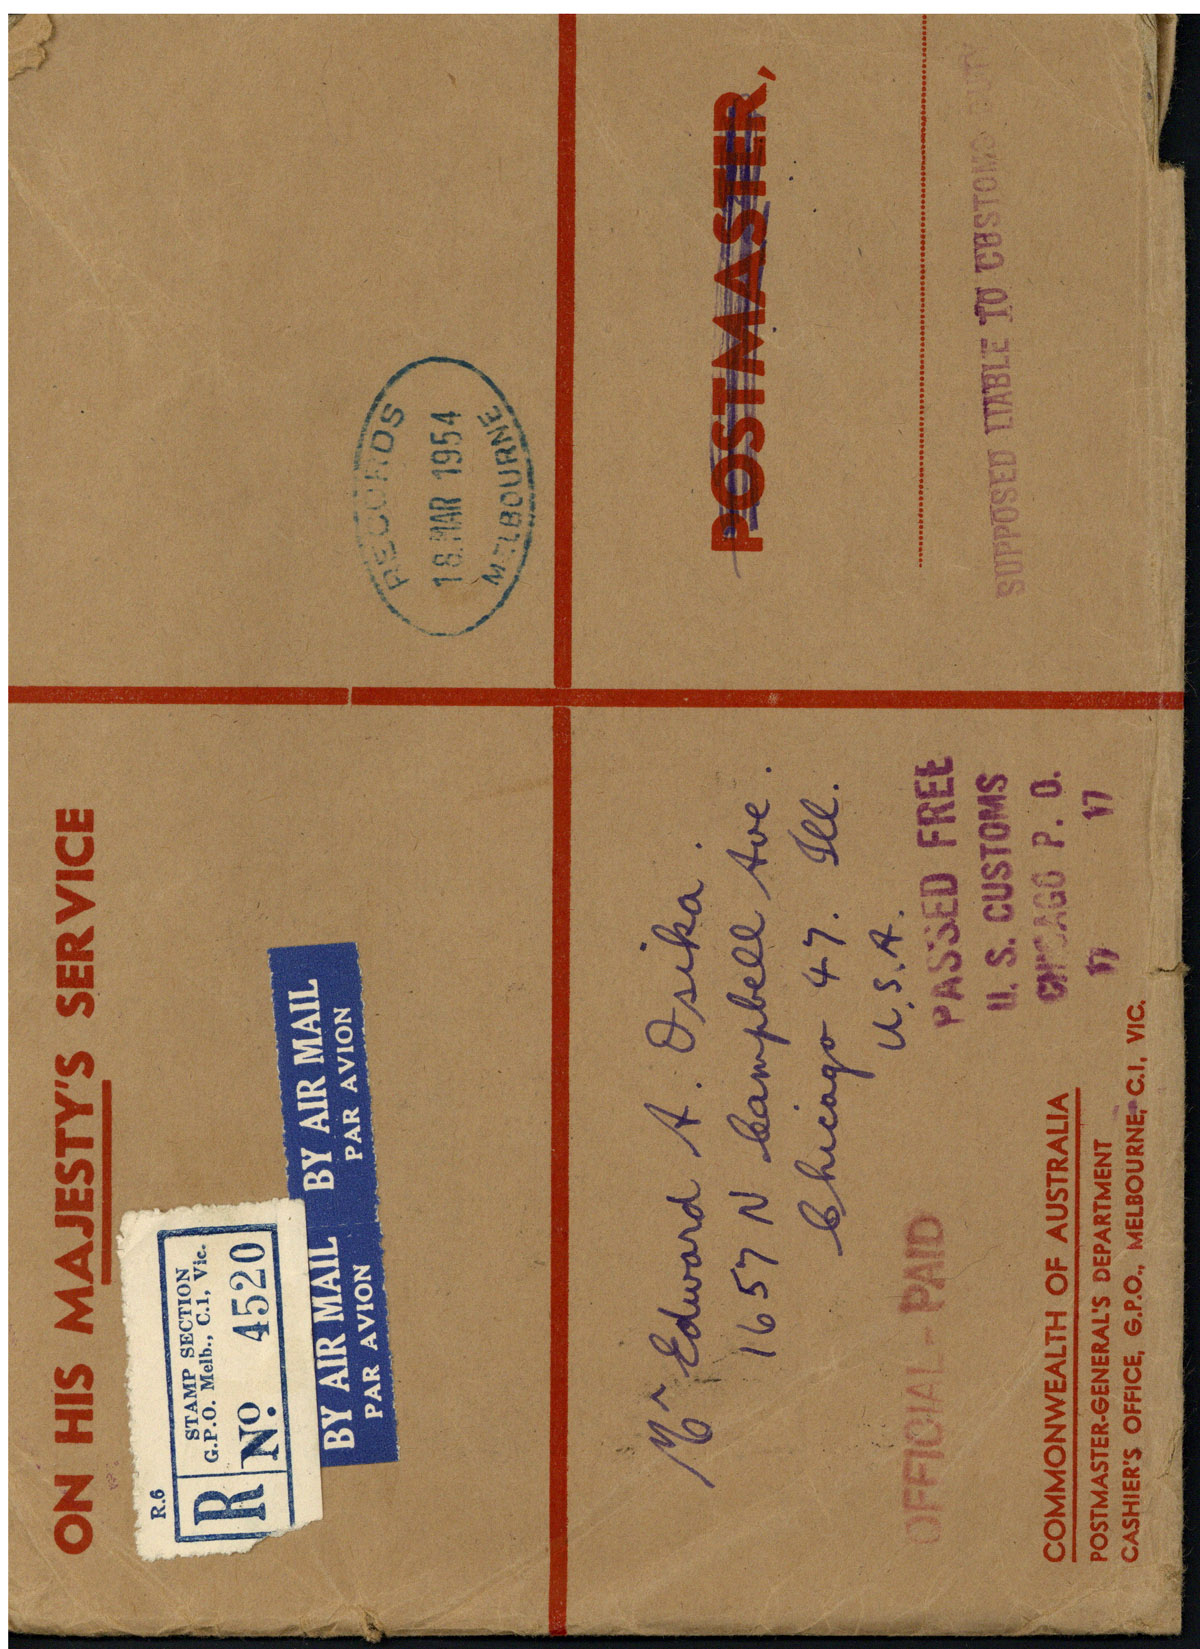 ON HIS MAJESTY'S SERVICE
R.6
STAMP SECTION
G.P.O. Melb., C.1, Vic.
R
No. 4520
BY AIR MAIL
PAR AVION
BY AIR MAIL
PAR AVION
RECORDS
18 MAR 1954
MELBOURNE
POSTMASTER,
Mr Edward A. Osika.
1657 N Campbell Ave.
Chicago 47. Ill.
U.S.A.
OFFICIAL-PAID
PASSED FREE
U. S. CUSTOMS
CHICAGO P. O.
17 17
SUPPOSED LIABLE TO CUSTOMS DUTY
COMMONWEALTH OF AUSTRALIA
POSTMASTER-GENERAL'S DEPARTMENT
CASHIER'S OFFICE, G.P.O., MELBOURNE, C.1, VIC.